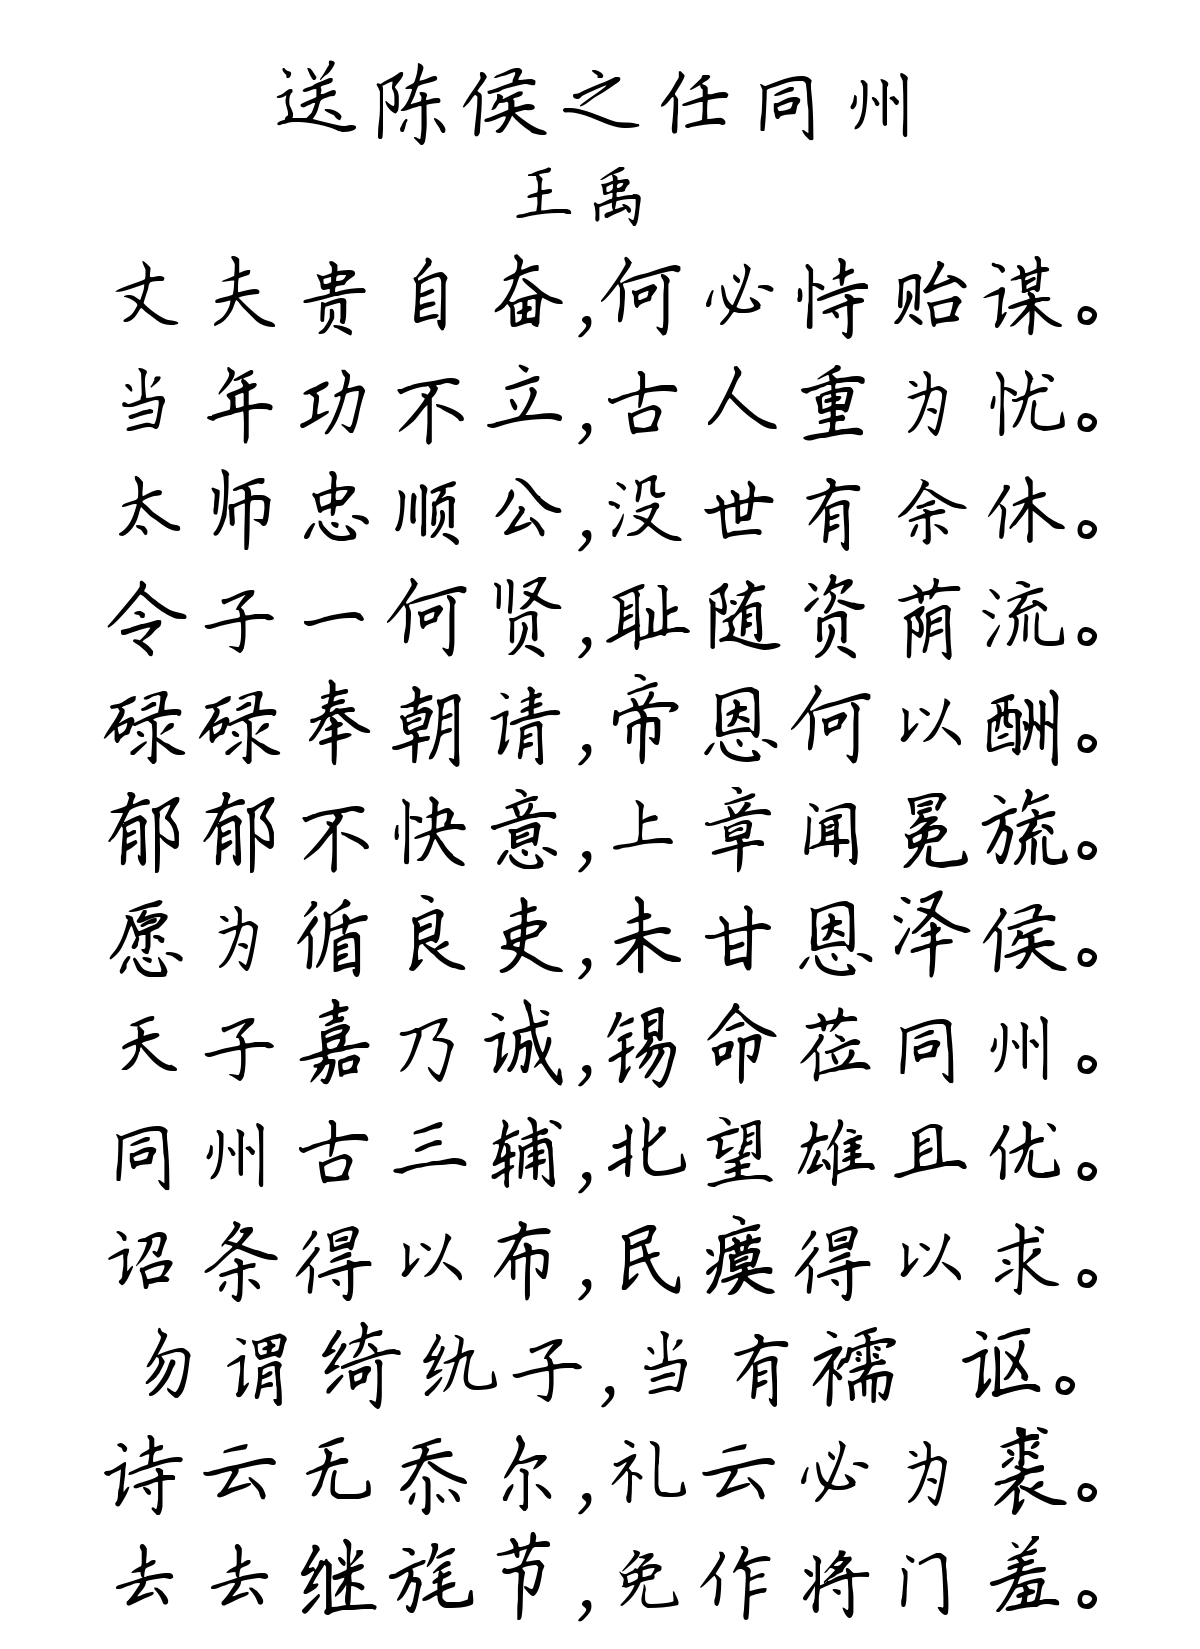 送陈侯之任同州
王禹
丈夫贵自奋,何必恃贻谋。
当年功不立,古人重为忧。
太师忠顺公,没世有余休。
令子一何贤,耻随资荫流。
碌碌奉朝请,帝恩何以酬。
郁郁不快意,上章闻冕旒。
愿为循良吏,未甘恩泽侯。
天子嘉乃诚,锡命莅同州。
同州古三辅,北望雄且优。
诏条得以布,民瘼得以求。
勿谓绮纨子,当有襦 讴。
诗云无忝尔,礼云必为裘。
去去继旄节,免作将门羞。